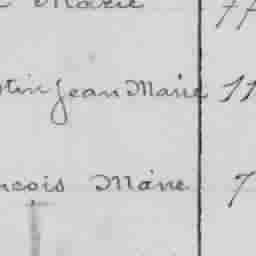 Marie 77
tin Jean Marie 11
ncois Marie 7